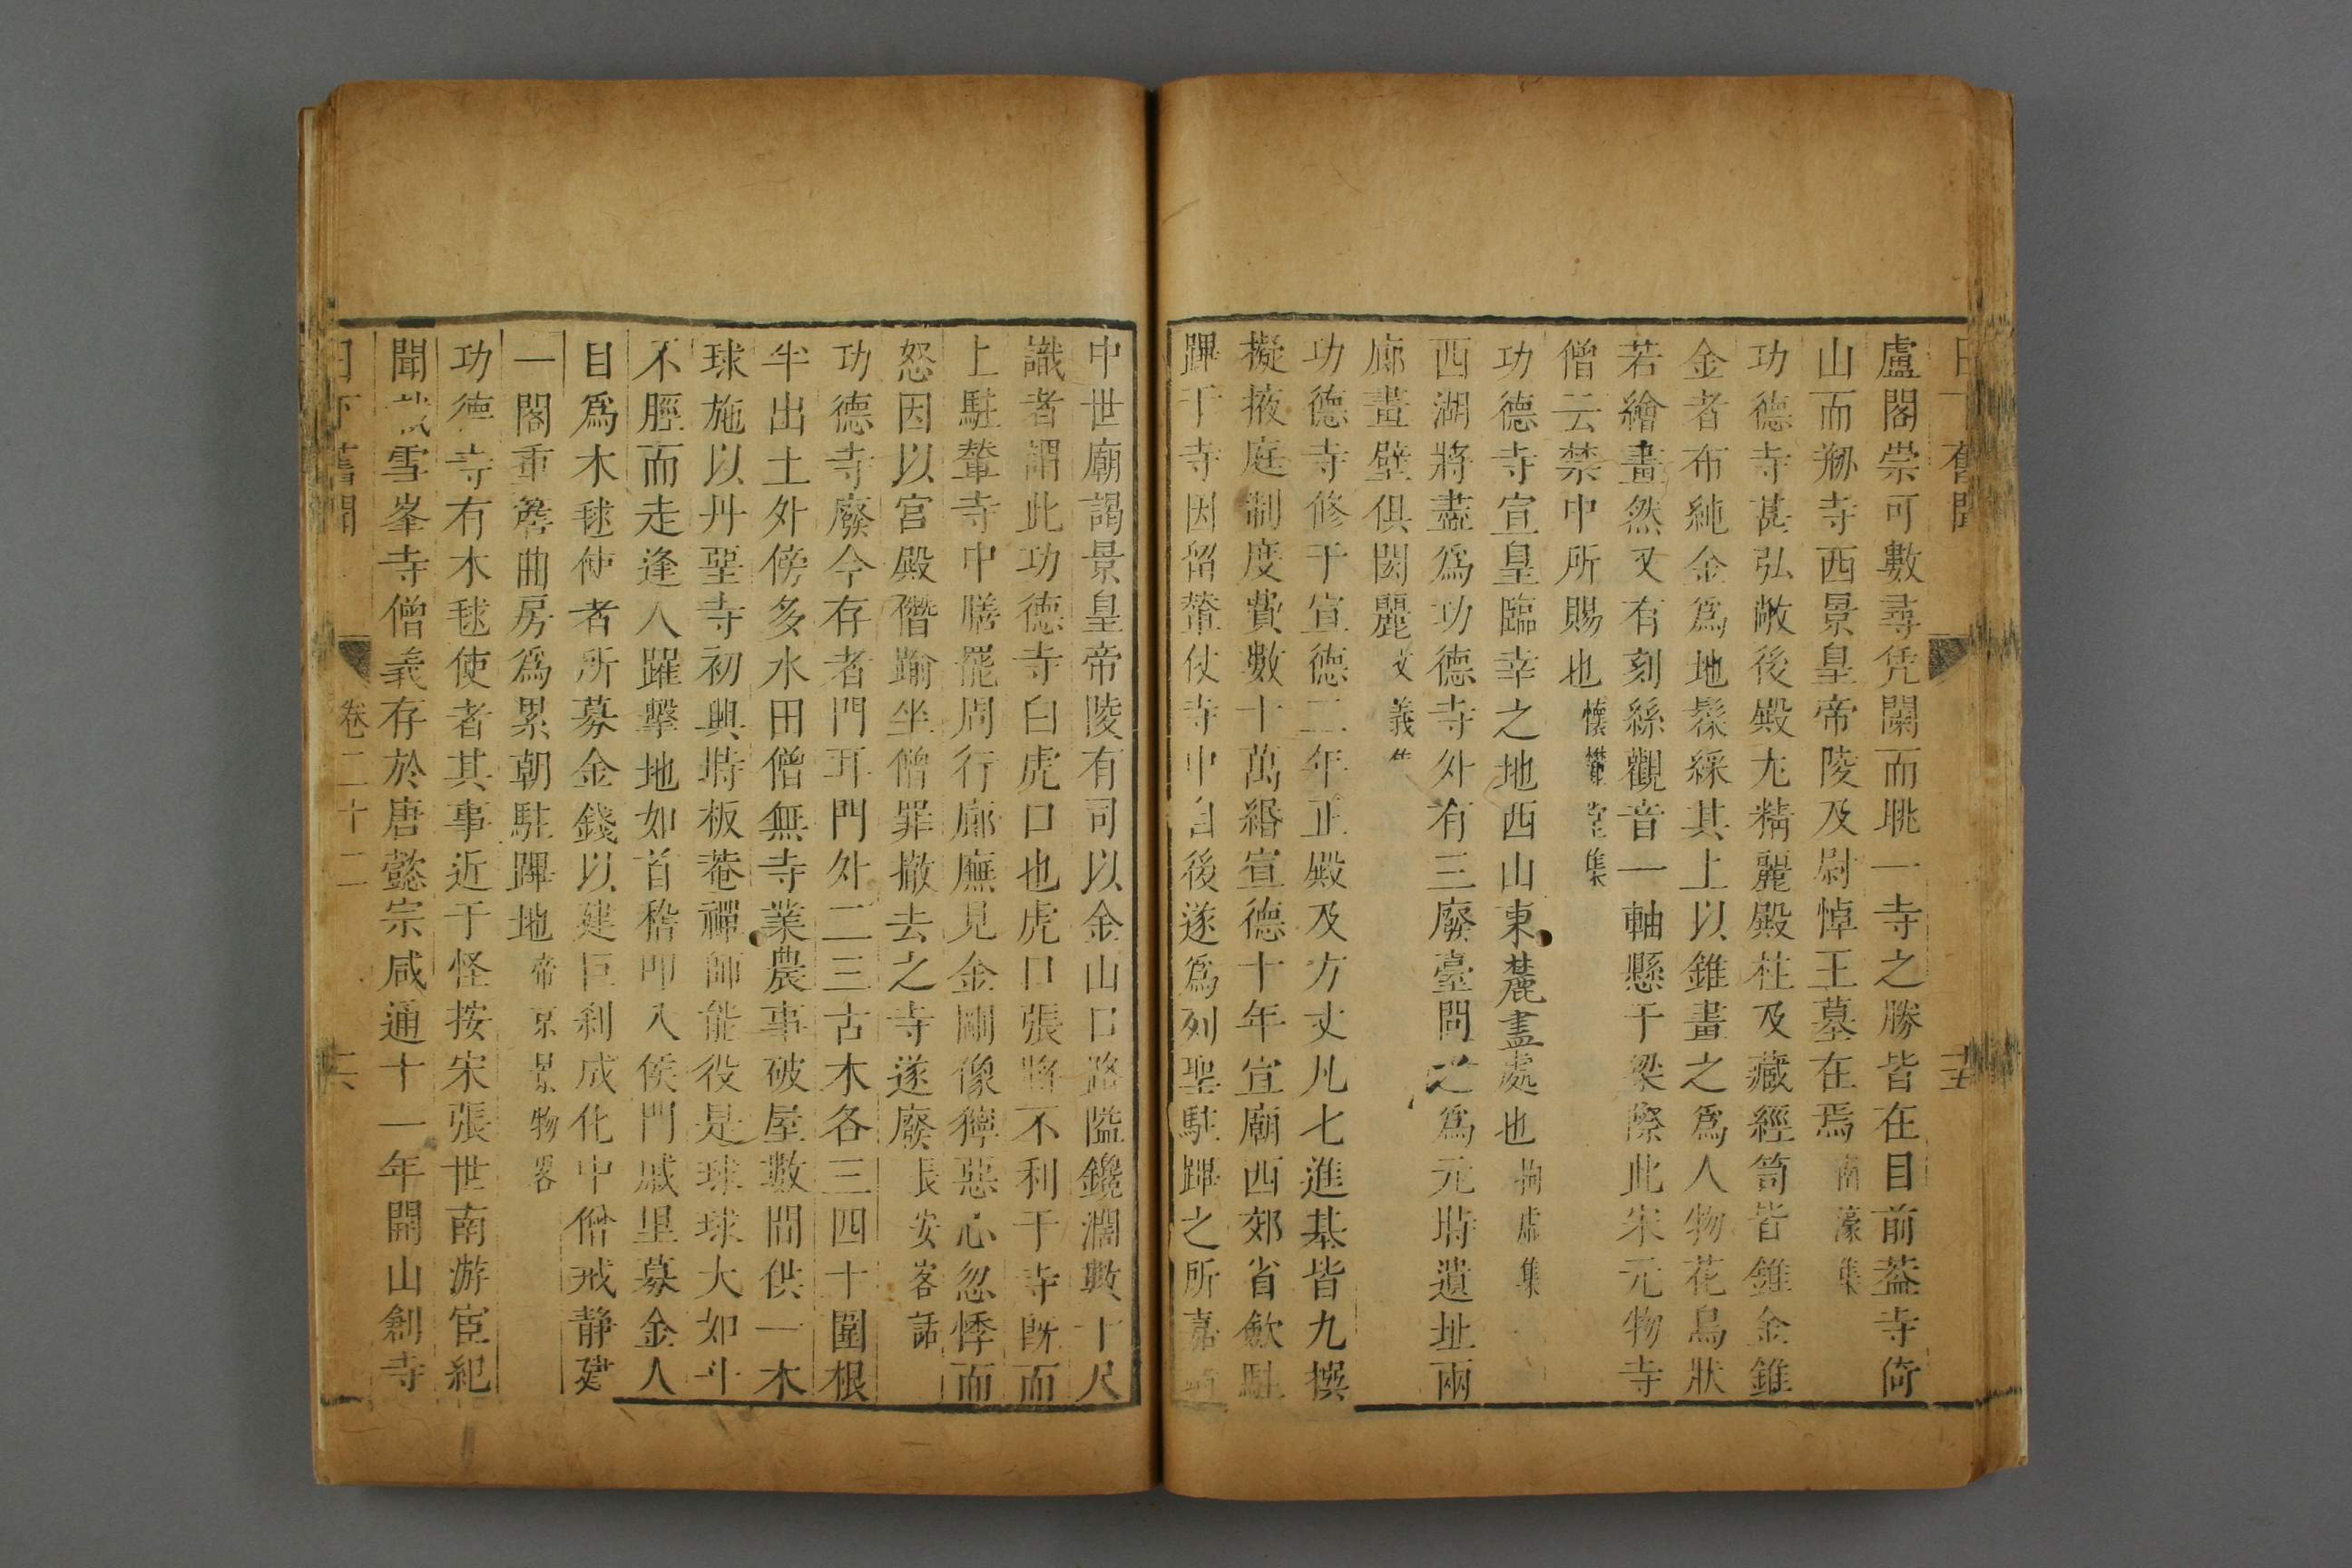 盧閣崇可數尋凭闌而眺一寺之勝皆在目前葢寺倚
山而剏寺西景皇帝陵及尉悼王墓在焉 南濠集
功德寺甚弘敞後殿尤精麗殿柱及藏經笥皆錐金錐
金者布純金爲地髹綵其上以錐畫之爲人物花鳥狀
若繪畫然又有刻絲觀音一軸懸于梁際此宋元物寺
僧云禁中所賜也 懷麓堂集
功德寺宣皇臨幸之地西山東麓盡處也 拘虛集
西湖將盡爲功德寺外有三廢臺問之爲元時遺址兩
廊畫壁俱閎麗
功德寺修于宣德二年正殿及方丈凡七進基皆九撰
擬掖庭制度費數十萬緡宣德十年宣廟西郊省斂駐
蹕于寺因留輦仗寺中自後遂爲列聖駐蹕之所嘉
中世廟謁景皇帝陵有司以金山口路隘鑱濶數十尺
識者謂此功德寺白虎口也虎口張將不利于寺旣而
上駐輦寺中膳罷周行廊廡見金剛像獰惡心忽悸而
怒因以宫殿僭踰坐僧罪撤去之寺遂廢 長安客話
功德寺廢今存者門耳門外二三古木各三四十圍根
半出土外傍多水田僧無寺業農事破屋數間供一木
球施以丹堊寺初興時板菴禪師能役是球球大如斗
不脛而走逢人躍擊地如首稽叩入侯門戚里募金人
目爲木毬使者所募金錢以建巨刹成化中僧戒静建
一閣重簷曲房爲累朝駐蹕地 帝京景物畧
功德寺有木毬使者其事近于怪按宋張世南游宦紀
聞載雪峯寺僧義存於唐懿宗咸通十一年開山創寺
日下舊聞 卷二十二